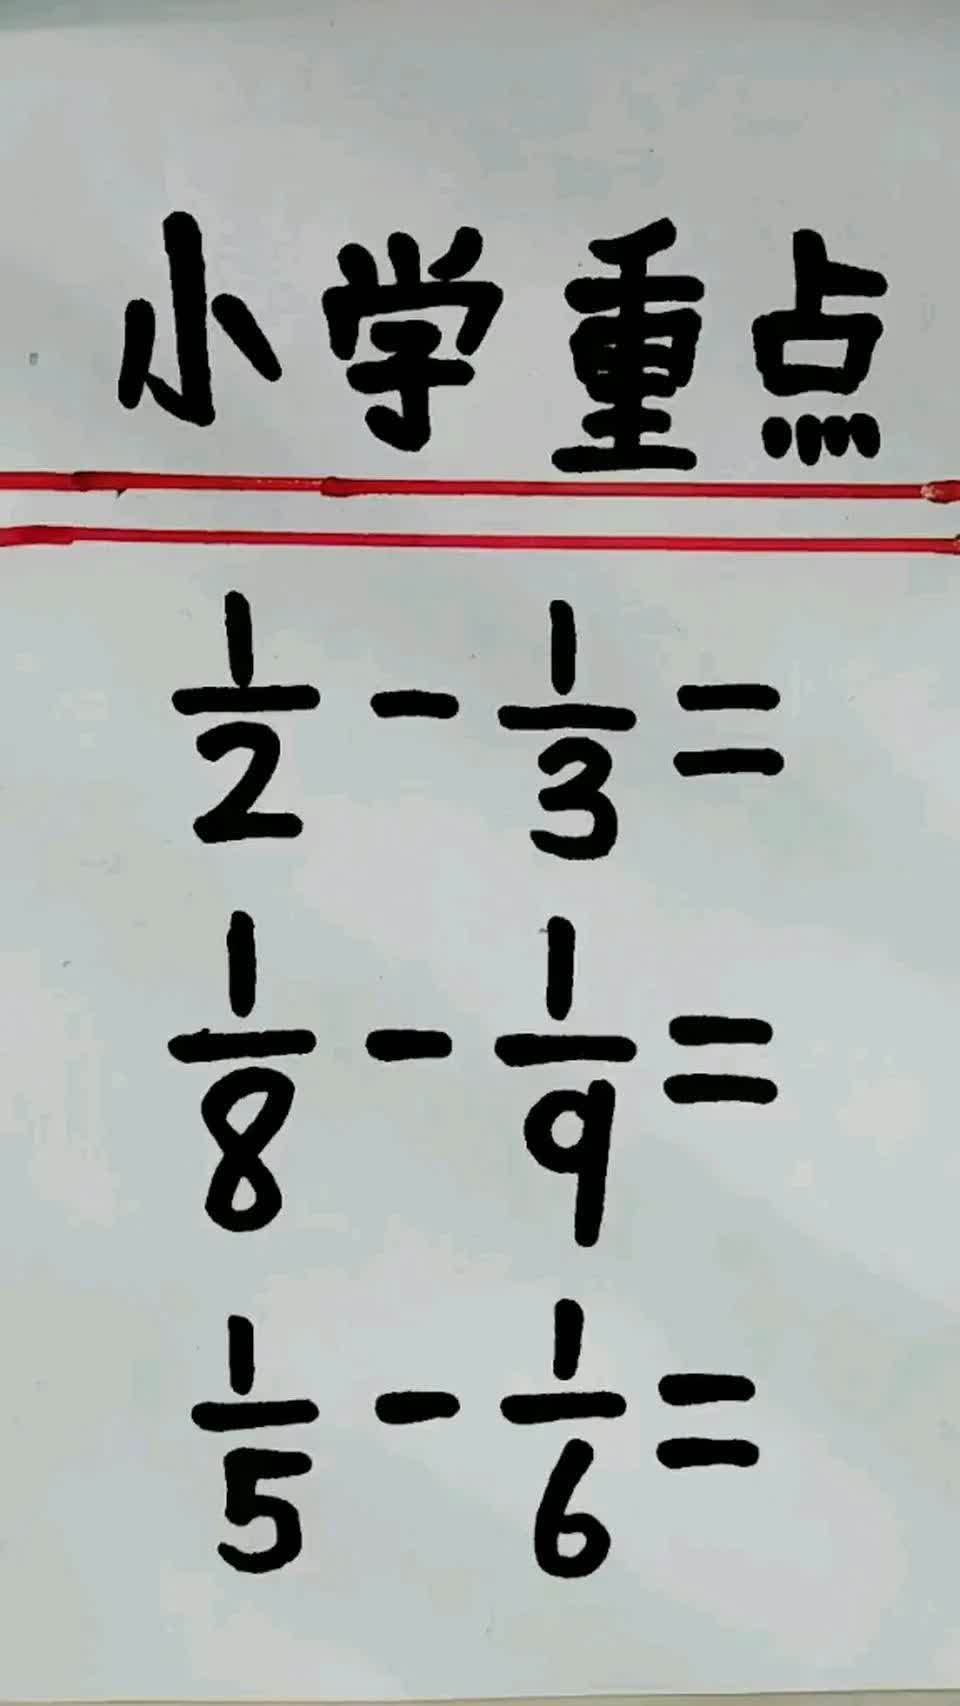 小学重点
1/2 - 1/3 =
1/8 - 1/9 =
1/5 - 1/6 =